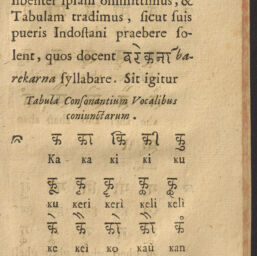 libenter ipsam omittimus, &
Tabulam tradimus, sicut suis
pueris Indostani praebere so-
lent, quos docent बारेकर्ना ba-
rekarna syllabare. Sit igitur
Tabula Consonantium Vocalibus
coniunctarum.
क का कि की कु
Ka ka ki ki ku
ku keri keri keli keli
के कै को कौ कं
ke kei ko kaü kan